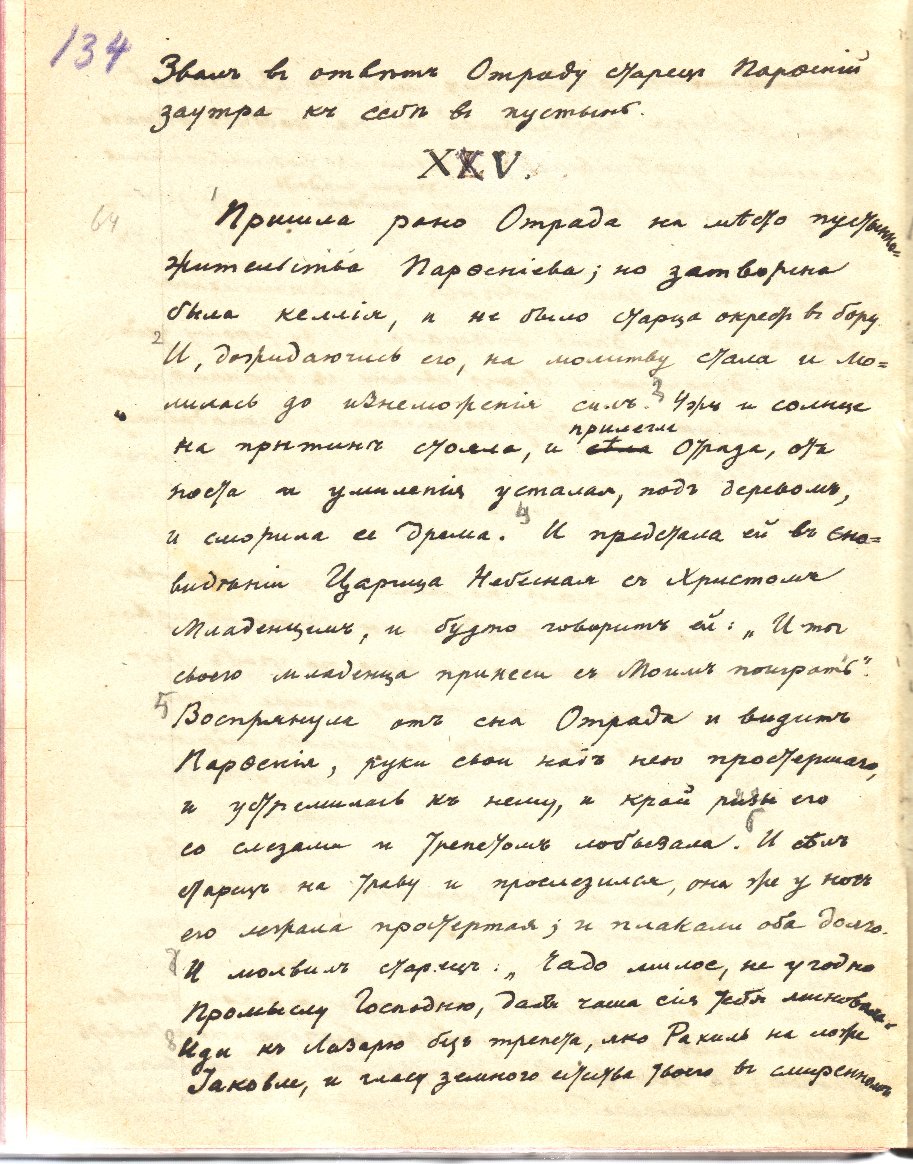 134
Звалъ въ отвѣтъ Отраду старецъ Парѳеній
заутра къ себѣ въ пустынь.
XXV.
64
1 Пришла рано Отрада на мѣсто пустынно-
жительства Парѳеніева; но затворена
была келлія, и не было старца окрестъ въ бору.
2 И, дожидаючись его, на молитву стала и мо=
лилась до изнеможенія силъ. 3 Ужъ и солнце
прилегла
на прѣтинѣ стояло, и сѣла Отрада, отъ
поста и умиленія усталая, подъ деревомъ,
и сморила ее дрема. 4 И предстала ей въ сно=
видѣніи Царица Небесная съ Христомъ
Младенцемъ, и будто говоритъ ей: „И ты
своего младенца принеси съ Моимъ поиграть“.
5 Воспрянула отъ сна Отрада и видитъ
Парѳенія, руки свои надъ нею простершаго,
и устремилась къ нему, и край ризы его
со слезами и трепетомъ лобызала. 6 И сѣлъ
старецъ на траву и прослезился, она же у ногъ
его лежала простертая; и плакали оба долго.
7 И молвилъ старецъ: „Чадо милое, не угодно
Промыслу Господню, дабы чаша сія тебя миновала.
8 Иди къ Лазарю безъ трепета, яко Рахиль на ложе
Іаковле, и гласу земного естства твоего въ смиренномъ